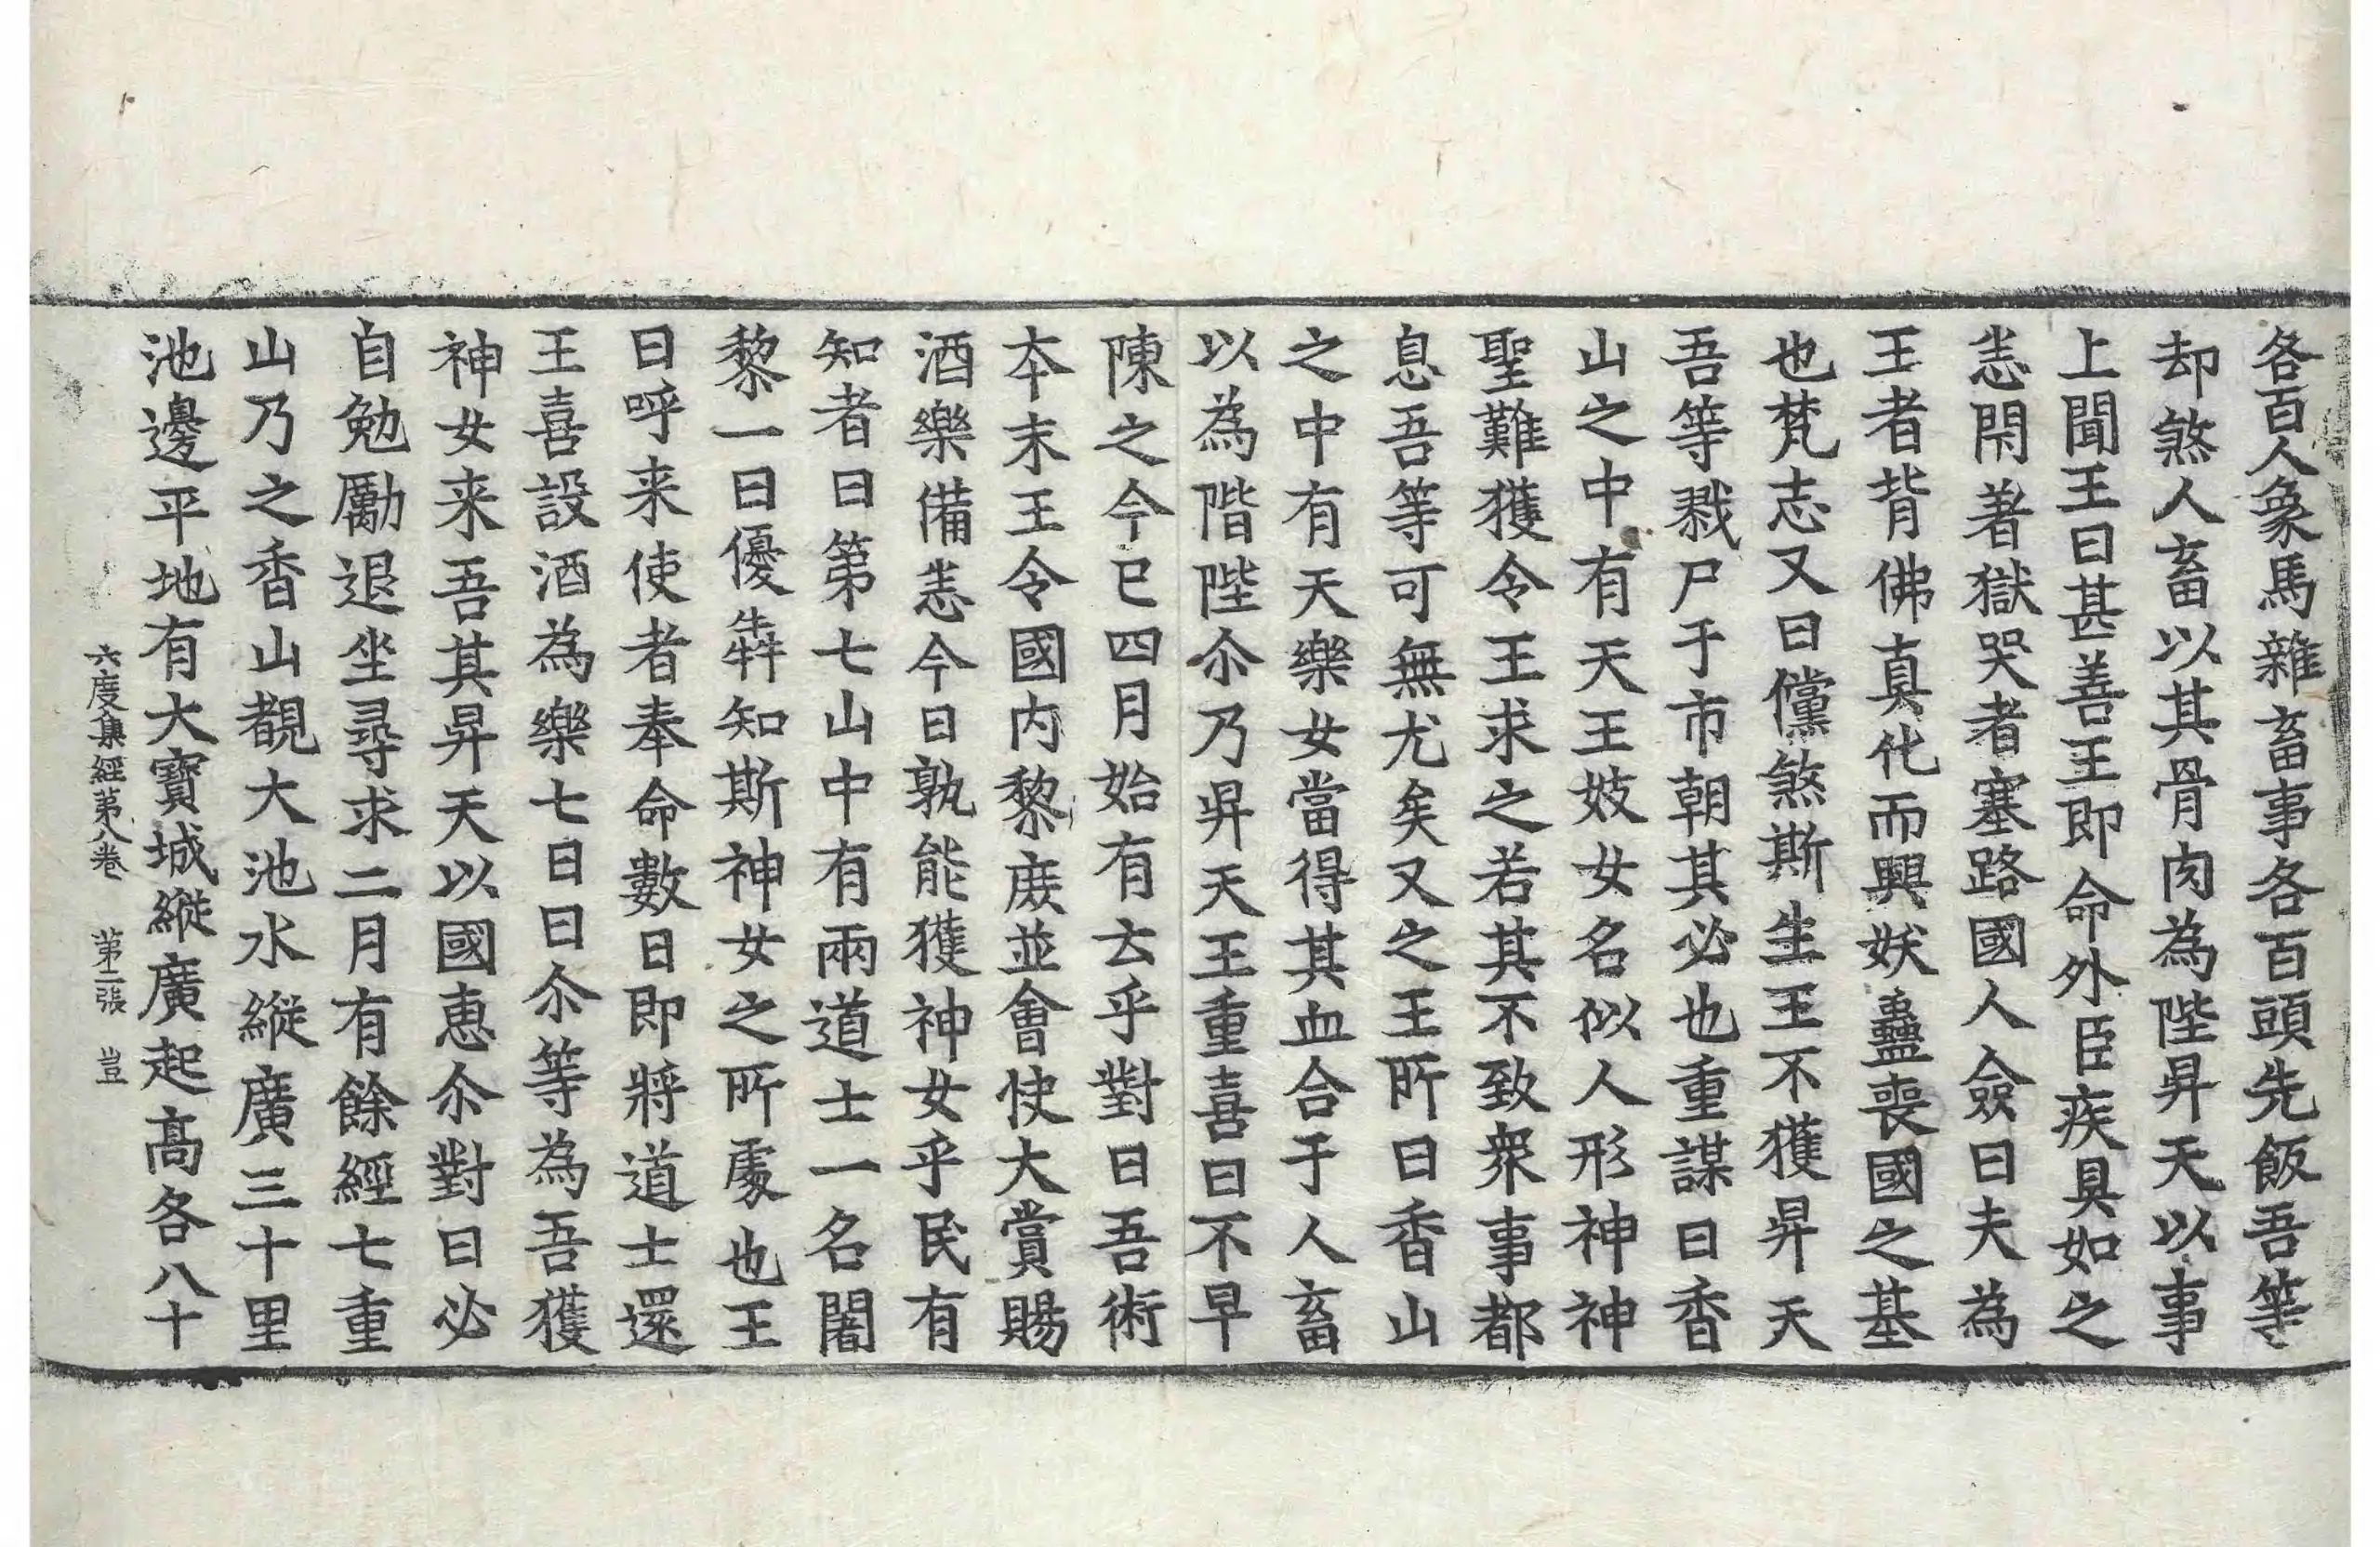 各百人象馬雜畜事各百頭先飯吾等
却煞人畜以其骨肉為陛昇天以事
上聞王曰甚善王即命外臣疾具如之
恙閇著獄哭者塞路國人僉曰夫為
王者背佛真化而興妖蠱喪國之基
也梵志又曰儻煞斯生王不獲昇天
吾等戮尸于市朝其必也重謀曰香
山之中有天王妓女名似人形神神
聖難獲令王求之若其不致衆事都
息吾等可無尤矣又之王所曰香山
之中有天樂女當得其血合于人畜
以為階陛尒乃昇天王重喜曰不早
陳之今已四月始有云乎對曰吾術
本末王令國内黎庶並會快大賞賜
酒樂備恙今日孰能獲神女乎民有
知者曰第七山中有兩道士一名闍
黎一曰優犇知斯神女之所處也王
曰呼来使者奉命數日即將道士還
王喜設酒為樂七日曰尒等為吾獲
神女来吾其昇天以國惠尒對曰必
自勉勵退坐尋求二月有餘經七重
山乃之香山覩大池水縱廣三十里
池邊平地有大寶城縱廣起高各八十
六度集經第八卷　第二張　豈